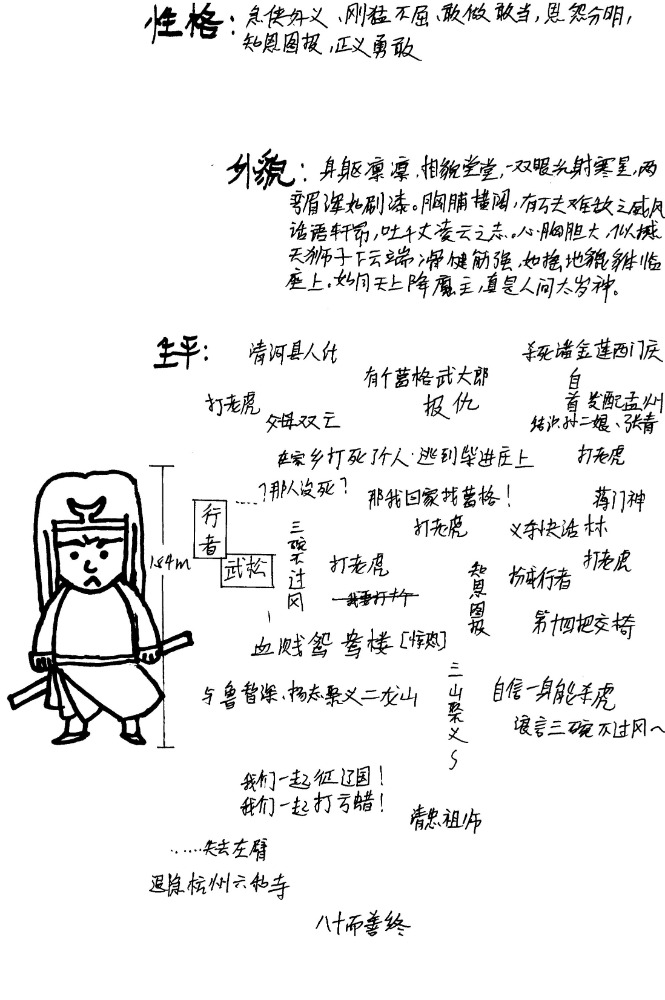 性格：急侠好义、刚猛不屈、敢做敢当，恩怨分明，
知恩图报，正义勇敢
外貌：身躯凛凛，相貌堂堂，一双眼光射寒星，两
弯眉浑如刷漆。胸脯横阔，有万夫难敌之威风
话语轩昂，吐千丈凌云之志。心胸胆大，似撼
天狮子下云端，骨健筋强，如摇地貔貅临
座上。如同天上降魔主，真是人间太岁神。
生平：
清河县人仕
杀死潘金莲西门庆
有个葛格武大郎
自
首发配孟州
打老虎
报仇
父母双亡
结识孙二娘、张青
在家乡打死了个人·逃到柴进庄上
打老虎
？那人没死？
那我回家找葛格！
蒋门神
行者
武松
1.84m
三碗不过冈
打老虎
义夺快活林
打老虎
打老虎
知恩图报
扮成行者
第十四把交椅
血溅鸳鸯楼[惊败]
与鲁智深、杨志聚义二龙山
三山聚义
自信一身能杀虎
浪言三碗不过冈～
我们一起征辽国！
我们一起打方蜡！
清忠祖师
……失去左臂
退隐杭州六和寺
八十而善终